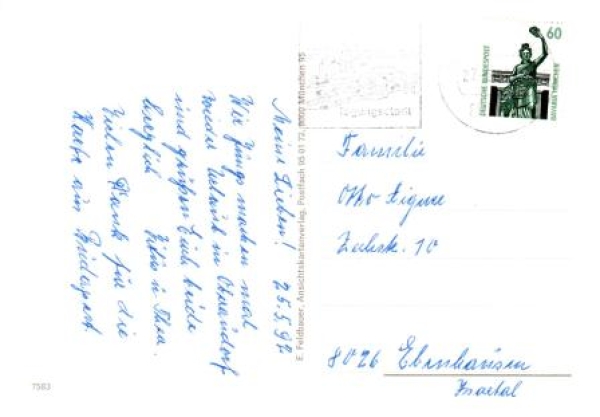 Meine Lieben! 25.5.92
Wir Jungs machen mal
wieder Urlaub in
und grüßen Euch beide
herzlich
Vielen Dank für die
Karte aus Budapest.
E. Feldbauer, Ansichtskartenverlag, Postfach 95 01 73, 8000 München 95
60
DEUTSCHE BUNDESPOST
BAVARIA MÜNCHEN
Familie
Otto
10
8026 Ebenhausen
Isartal
7583